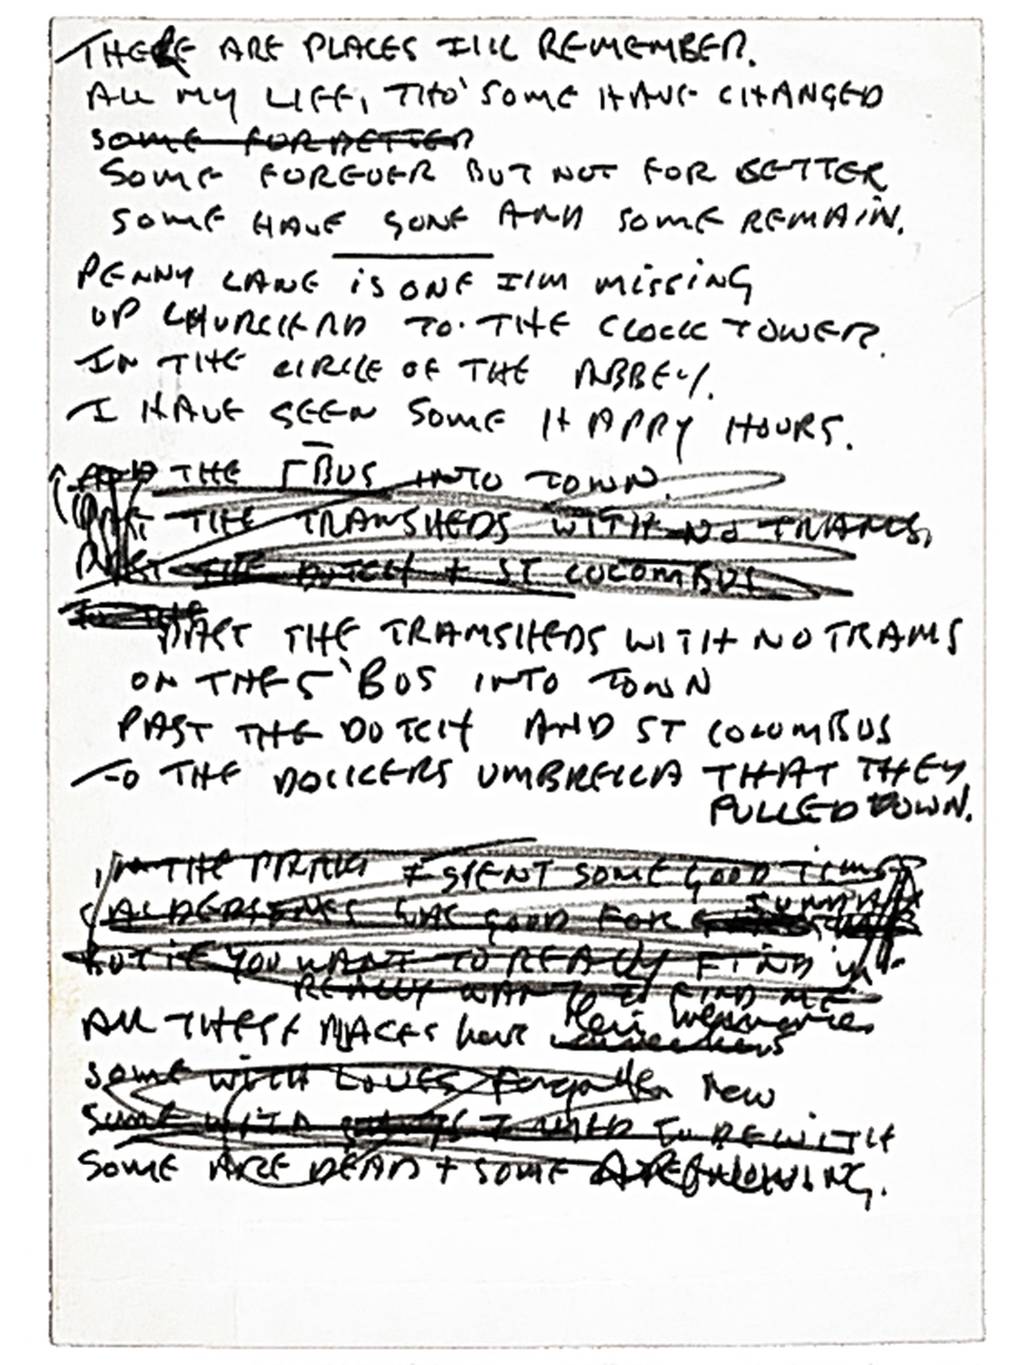 THERE ARE PLACES I'LL REMEMBER.
ALL MY LIFE, THO' SOME HAVE CHANGED
SOME FOR BETTER
SOME FOREVER BUT NOT FOR BETTER
SOME HAVE GONE AND SOME REMAIN.
PENNY LANE IS ONE I'M MISSING
UP CHURCH RD TO THE CLOCK TOWER.
IN THE CIRCLE OF THE ABBEY.
I HAVE SEEN SOME HAPPY HOURS.
THE 5 BUS INTO TOWN.
PAST THE TRAMSHEDS WITH NO TRAMS,
PAST THE DUTCH + ST COLUMBUS
PAST THE TRAMSHEDS WITH NO TRAMS
ON THE 5 BUS INTO TOWN
PAST THE DUTCH AND ST COLUMBUS
TO THE DOCKERS UMBRELLA THAT THEY
PULLED DOWN.
IN THE PARK I SPENT SOME GOOD TIMES
WAS GOOD FOR
BUT IF YOU WANT TO REALLY FIND
REALLY WANT TO FIND ME
ALL THESE PLACES have their memories
SOME WITH LOVES forgotten new
SOME WITH I USED TO BE WITH
SOME ARE DEAD + SOME ARE LIVING.